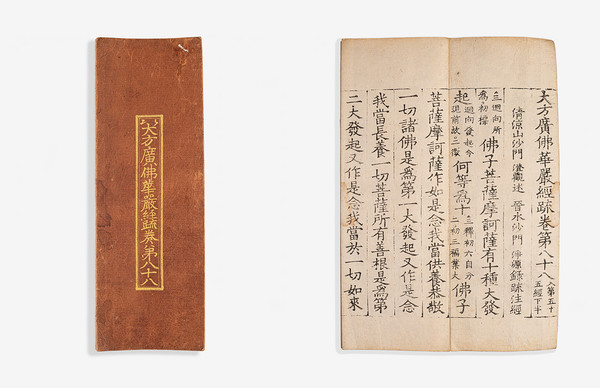 大方廣佛華嚴經疏卷第八十八
大方廣佛華嚴經疏卷第八十八 入第五十五經下半
清涼山沙門 澄觀述 晉水沙門 淨源錄疏注經
三迴向所為初標 佛子菩薩摩訶薩有十種大發
起 迴向後起今現前故三徵 何等為十 三釋初六自分二初三福業大 佛子
菩薩摩訶薩作如是念我當供養恭敬
一切諸佛是為第一大發起又作是念
我當長養一切菩薩所有善根是為第
二大發起又作是念我當於一切如來